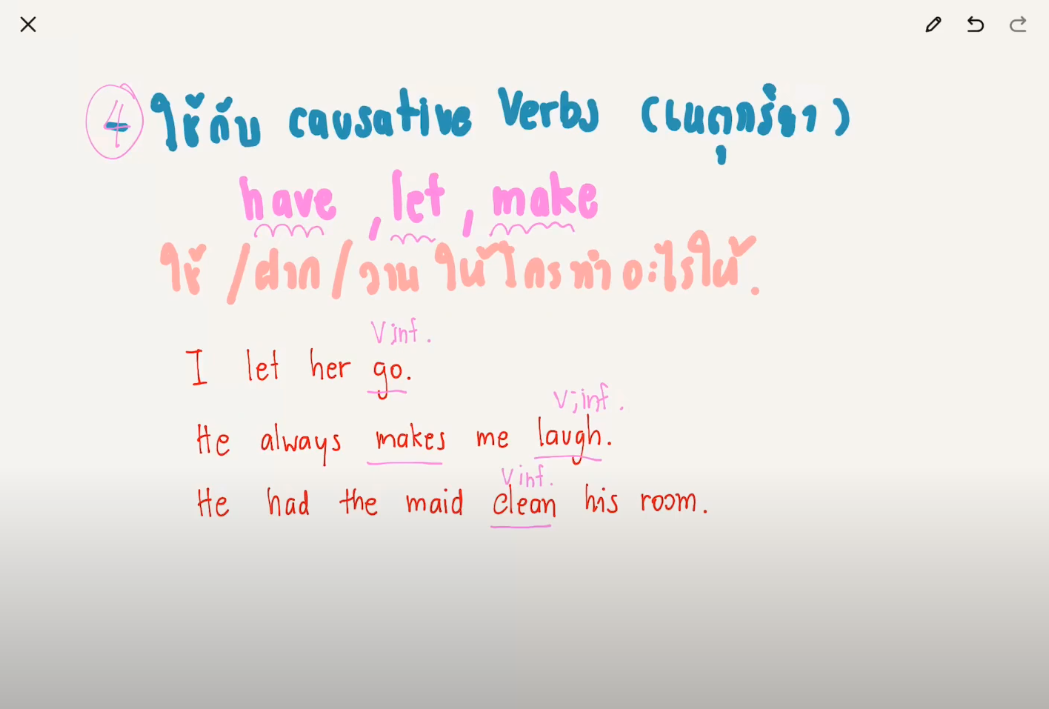 4 ใช้กับ causative Verbs (เหตุกริยา)
have , let , make
ใช้ /ฝาก/วาน ให้ใครทำอะไรให้.
V,inf.
I let her go.
V,inf.
He always makes me laugh.
Vinf.
He had the maid clean his room.